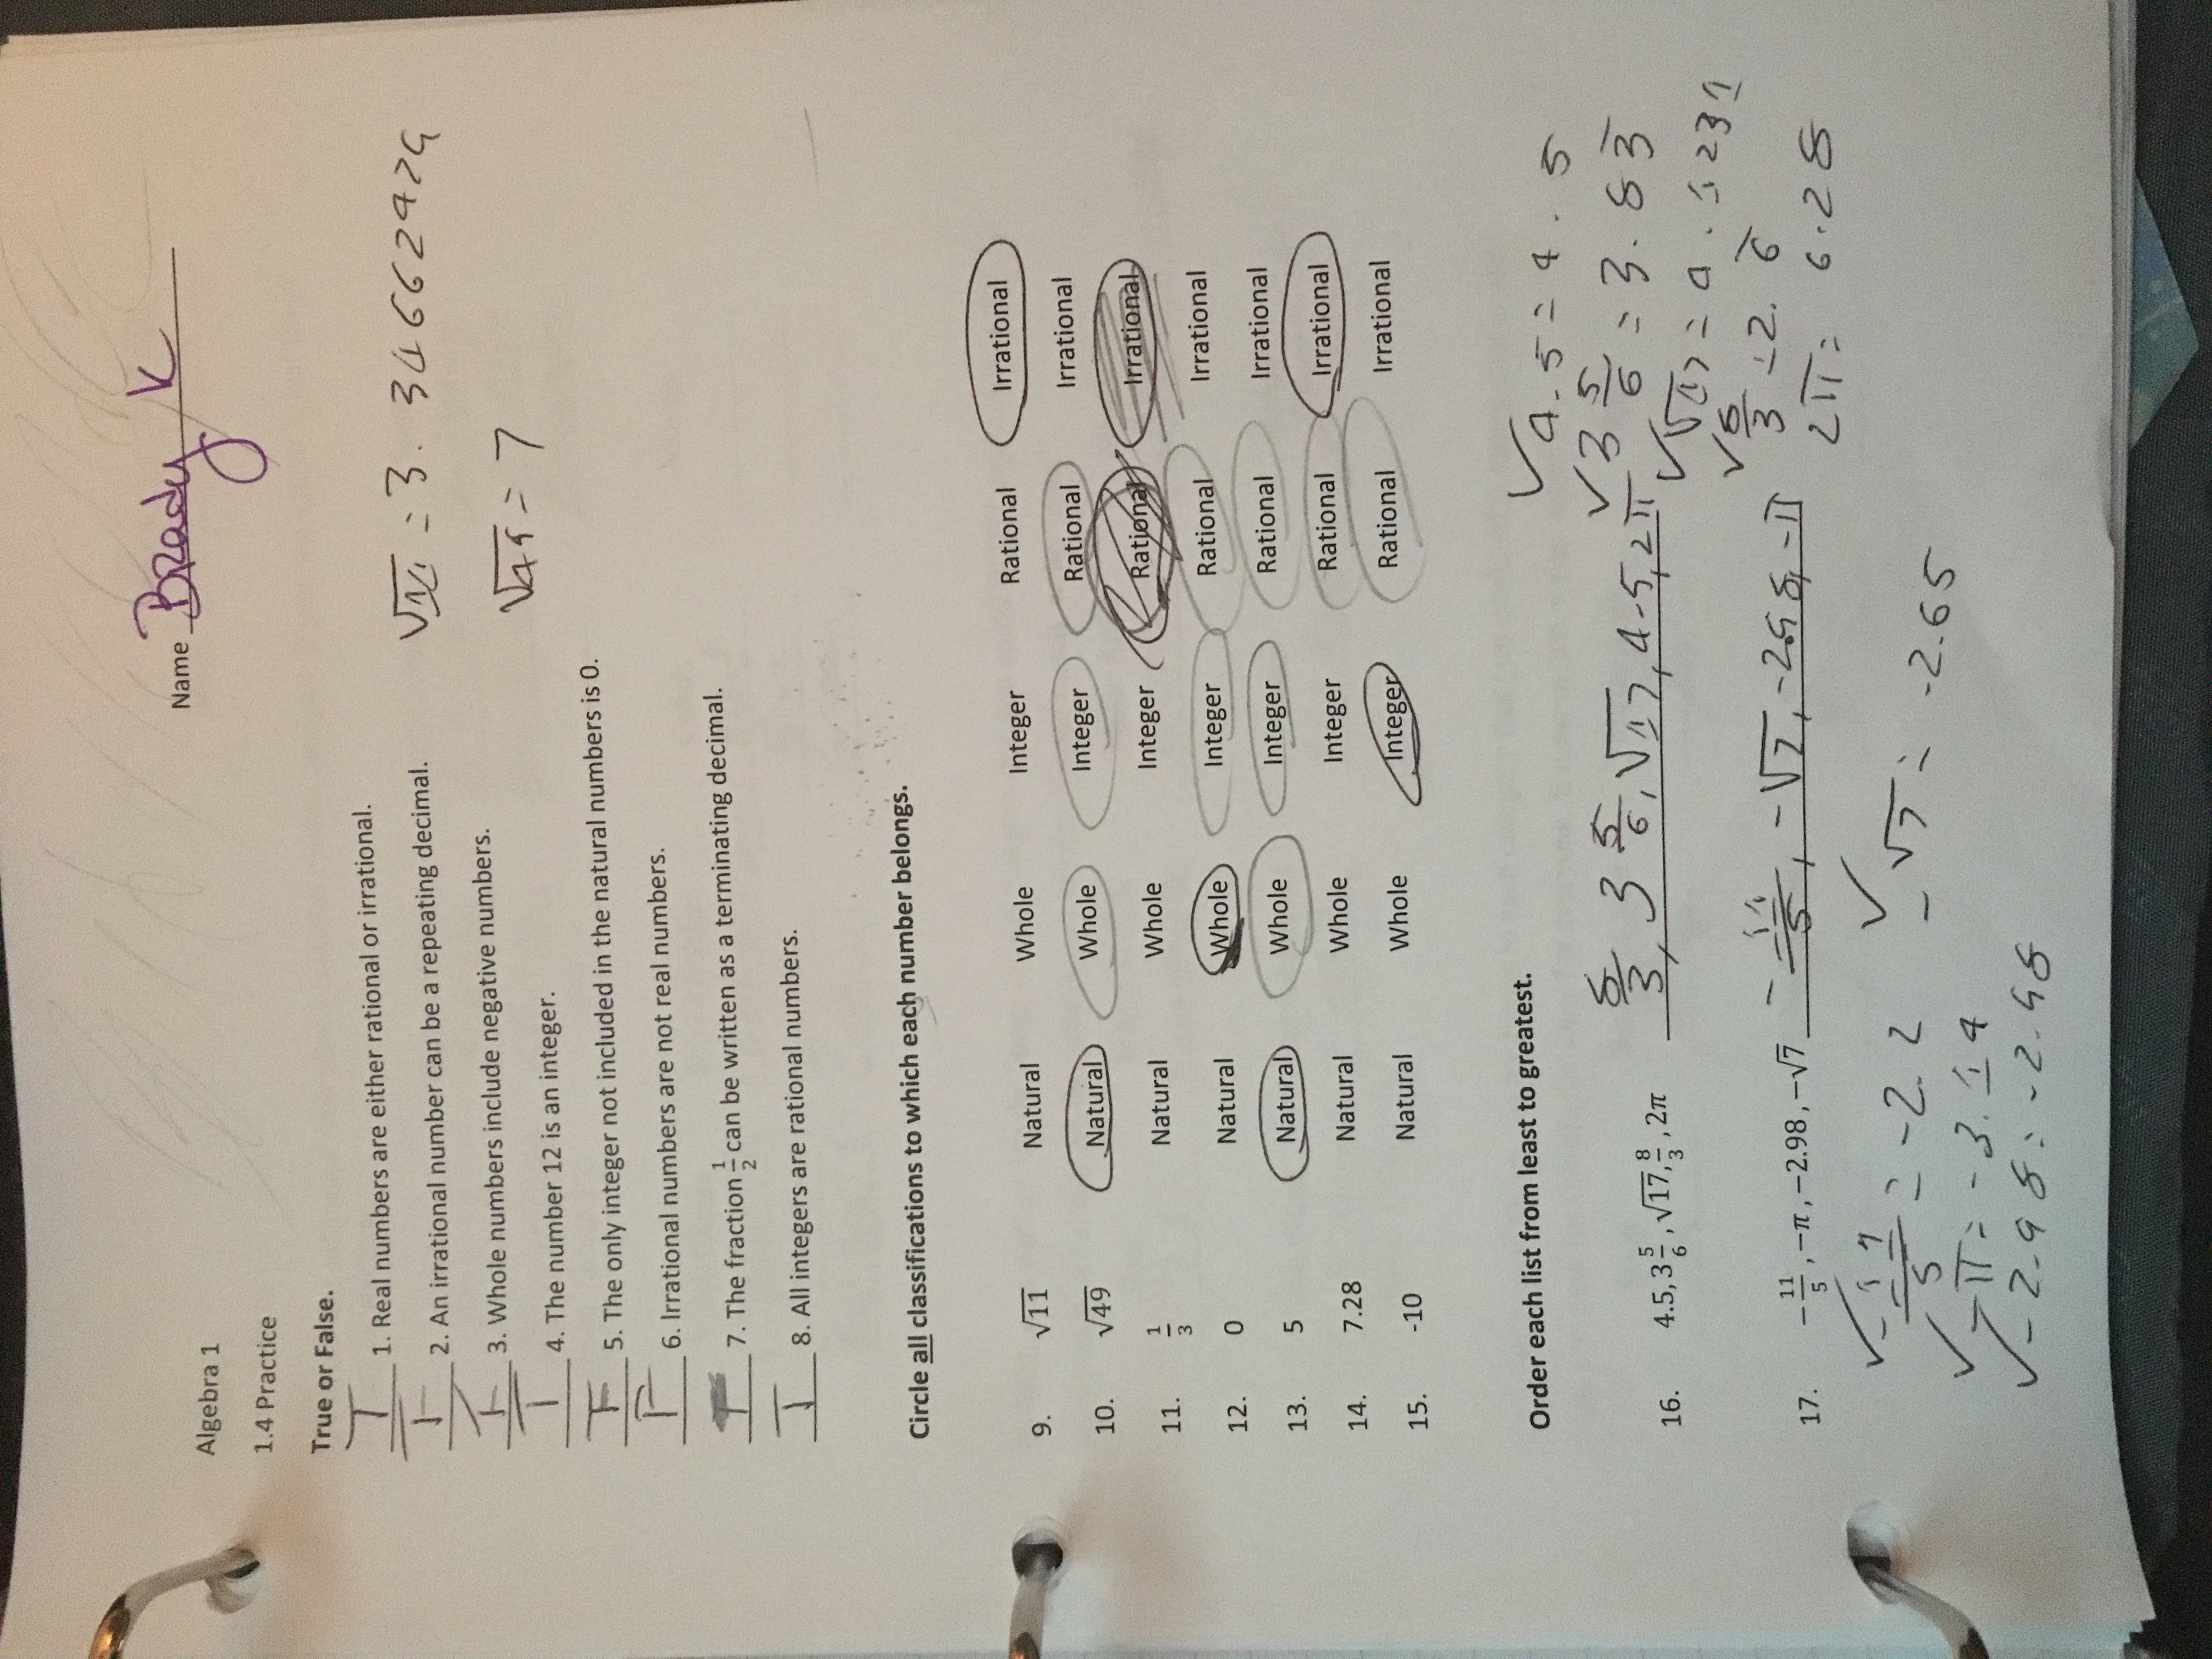 Name Brady K
Algebra 1
1.4 Practice
True or False.
T 1. Real numbers are either rational or irrational.
F 2. An irrational number can be a repeating decimal.
F 3. Whole numbers include negative numbers.
T 4. The number 12 is an integer.
F 5. The only integer not included in the natural numbers is 0.
F 6. Irrational numbers are not real numbers.
T 7. The fraction 1/2 can be written as a terminating decimal.
T 8. All integers are rational numbers.
√49 = 7
Circle all classifications to which each number belongs.
9. √11 Natural Whole Integer Rational Irrational
10. √49 Natural Whole Integer Rational Irrational
11. 1/3 Natural Whole Integer Rational Irrational
12. 0 Natural Whole Integer Rational Irrational
13. 5 Natural Whole Integer Rational Irrational
14. 7.28 Natural Whole Integer Rational Irrational
15. -10 Natural Whole Integer Rational Irrational
Order each list from least to greatest.
✓4.5 = 4.5
✓3 5/6 = 3.83̅
✓√17 = 4.1231
✓8/3 = 2.6̅
2π = 6.28
16. 4.5, 3 5/6, √17, 8/3, 2π 8/3, 3 5/6, √17, 4.5, 2π
17. -11/5, -π, -2.98, -√7 -11/5, -√7, -2.98, -π
✓-11/5 = -2.2
✓-√7 = -2.65
✓-π = -3.14
✓-2.98 = -2.98